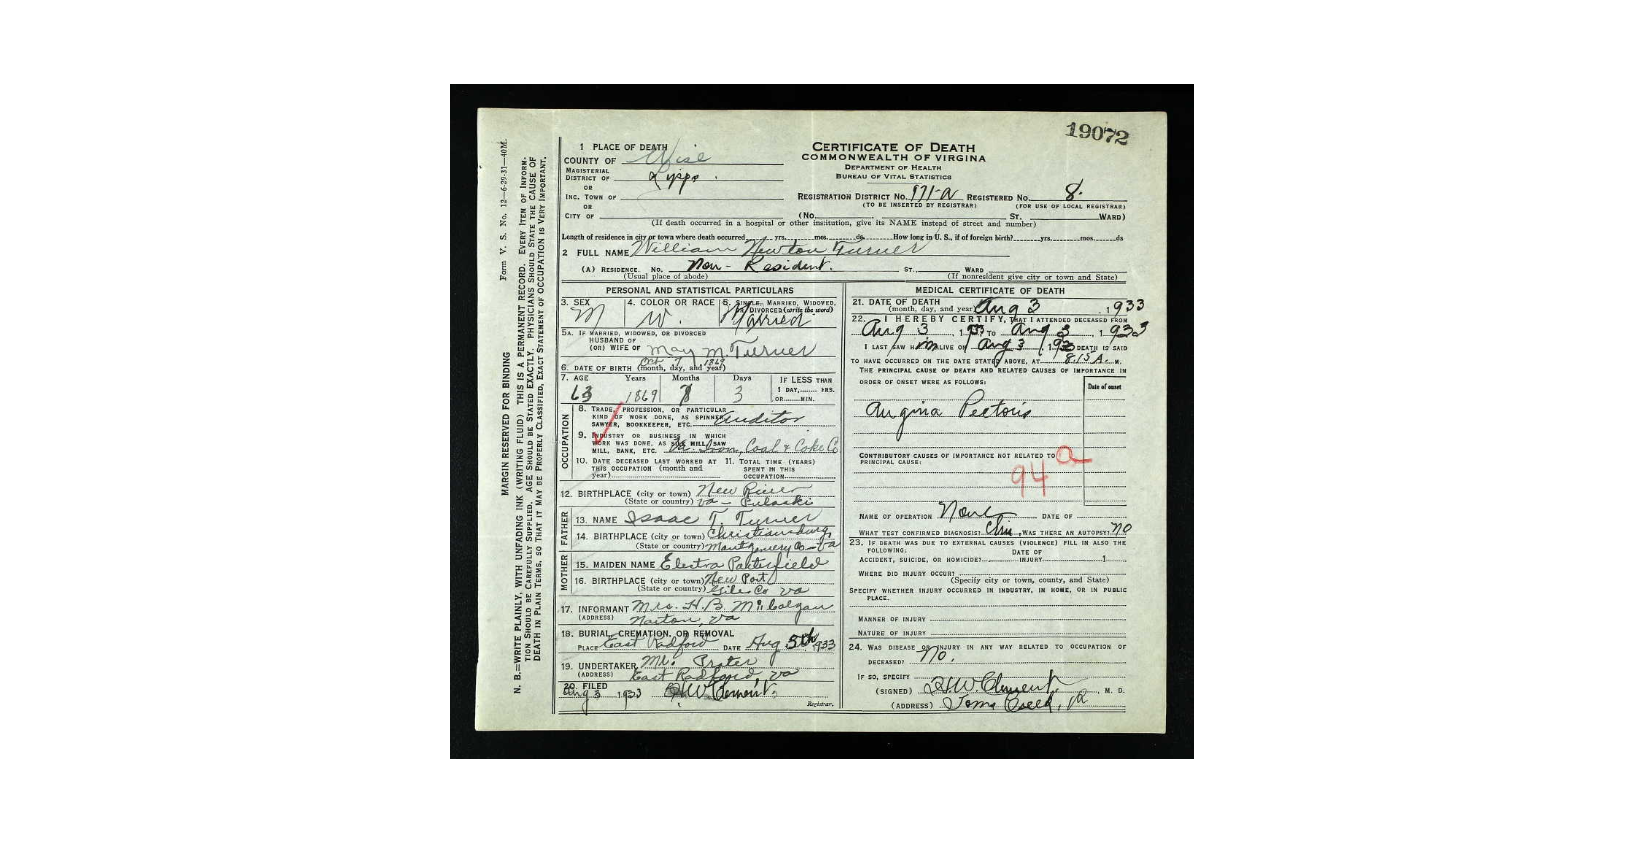 19072
1 PLACE OF DEATH
CERTIFICATE OF DEATH
COUNTY OF Wise
COMMONWEALTH OF VIRGINIA
MAGISTERIAL
DISTRICT OF Lipps.
DEPARTMENT OF HEALTH
BUREAU OF VITAL STATISTICS
OR
INC. TOWN OF
REGISTRATION DISTRICT No. 171-A REGISTERED No. 8.
(TO BE INSERTED BY REGISTRAR) (FOR USE OF LOCAL REGISTRAR)
OR
CITY OF (No. ST. WARD)
(If death occurred in a hospital or other institution, give its NAME instead of street and number)
Length of residence in city or town where death occurred yrs. mos. ds How long in U. S., if of foreign birth? yrs. mos. ds
2 FULL NAME William Newton Turner
(A) RESIDENCE. No. Non-Resident. ST. WARD
(Usual place of abode) (If nonresident give city or town and State)
PERSONAL AND STATISTICAL PARTICULARS
3. SEX M
4. COLOR OR RACE W.
5. SINGLE, MARRIED, WIDOWED, DIVORCED (write the word) Married
5A. IF MARRIED, WIDOWED, OR DIVORCED
HUSBAND OF
(OR) WIFE OF May M. Turner
6. DATE OF BIRTH (month, day, and year) 1869
7. AGE Years Months Days IF LESS THAN
63 1869 3 1 DAY, HRS.
OR MIN.
OCCUPATION
8. TRADE, PROFESSION, OR PARTICULAR
KIND OF WORK DONE, AS SPINNER,
SAWYER, BOOKKEEPER, ETC. Auditor
9. INDUSTRY OR BUSINESS IN WHICH
WORK WAS DONE, AS SILK MILL, SAW
MILL, BANK, ETC. Va. Iron, Coal & Coke Co
10. DATE DECEASED LAST WORKED AT
THIS OCCUPATION (month and
year)
11. TOTAL TIME (YEARS)
SPENT IN THIS
OCCUPATION
12. BIRTHPLACE (city or town) New River
(State or country) Va - Pulaski
FATHER
13. NAME Isaac T. Turner
14. BIRTHPLACE (city or town) Christiansburg
(State or country) Montgomery Co - Va
MOTHER
15. MAIDEN NAME Electra Patterfield
16. BIRTHPLACE (city or town) New Port
(State or country) Giles Co Va
17. INFORMANT Mrs. H.B. Milolgan
(ADDRESS) Norton, Va
18. BURIAL, CREMATION, OR REMOVAL
PLACE East Radford DATE Aug 5th 1933
19. UNDERTAKER Mr. Prater
(ADDRESS) East Radford Va
20. FILED Aug 3 1933 H.W. Clement.
Registrar.
MEDICAL CERTIFICATE OF DEATH
21. DATE OF DEATH
(month, day, and year) Aug 3, 1933
22. I HEREBY CERTIFY, THAT I ATTENDED DECEASED FROM
Aug 3, 1933 TO Aug 3, 1933
I LAST SAW HIM ALIVE ON Aug 3, 1933 DEATH IS SAID
TO HAVE OCCURRED ON THE DATE STATED ABOVE, AT 8.15 A. M.
THE PRINCIPAL CAUSE OF DEATH AND RELATED CAUSES OF IMPORTANCE IN
ORDER OF ONSET WERE AS FOLLOWS:
Date of onset
Angina Pectoris
CONTRIBUTORY CAUSES OF IMPORTANCE NOT RELATED TO
PRINCIPAL CAUSE:
94 a
NAME OF OPERATION None DATE OF
WHAT TEST CONFIRMED DIAGNOSIS? Clin WAS THERE AN AUTOPSY? no
23. IF DEATH WAS DUE TO EXTERNAL CAUSES (VIOLENCE) FILL IN ALSO THE
FOLLOWING:
DATE OF
ACCIDENT, SUICIDE, OR HOMICIDE? INJURY 1
WHERE DID INJURY OCCUR?
(Specify city or town, county, and State)
SPECIFY WHETHER INJURY OCCURRED IN INDUSTRY, IN HOME, OR IN PUBLIC
PLACE.
MANNER OF INJURY
NATURE OF INJURY
24. WAS DISEASE OR INJURY IN ANY WAY RELATED TO OCCUPATION OF
DECEASED? No.
IF SO, SPECIFY
(SIGNED) H.W. Clement, M. D.
(ADDRESS) Toms Creek, Va
Form V. S. No. 12—6-29-31—40M.
MARGIN RESERVED FOR BINDING
N. B.—WRITE PLAINLY, WITH UNFADING INK (WRITING FLUID) THIS IS A PERMANENT RECORD. EVERY ITEM OF INFORMA-
TION SHOULD BE CAREFULLY SUPPLIED. AGE SHOULD BE STATED EXACTLY. PHYSICIANS SHOULD STATE THE CAUSE OF
DEATH IN PLAIN TERMS, SO THAT IT MAY BE PROPERLY CLASSIFIED. EXACT STATEMENT OF OCCUPATION IS VERY IMPORTANT.